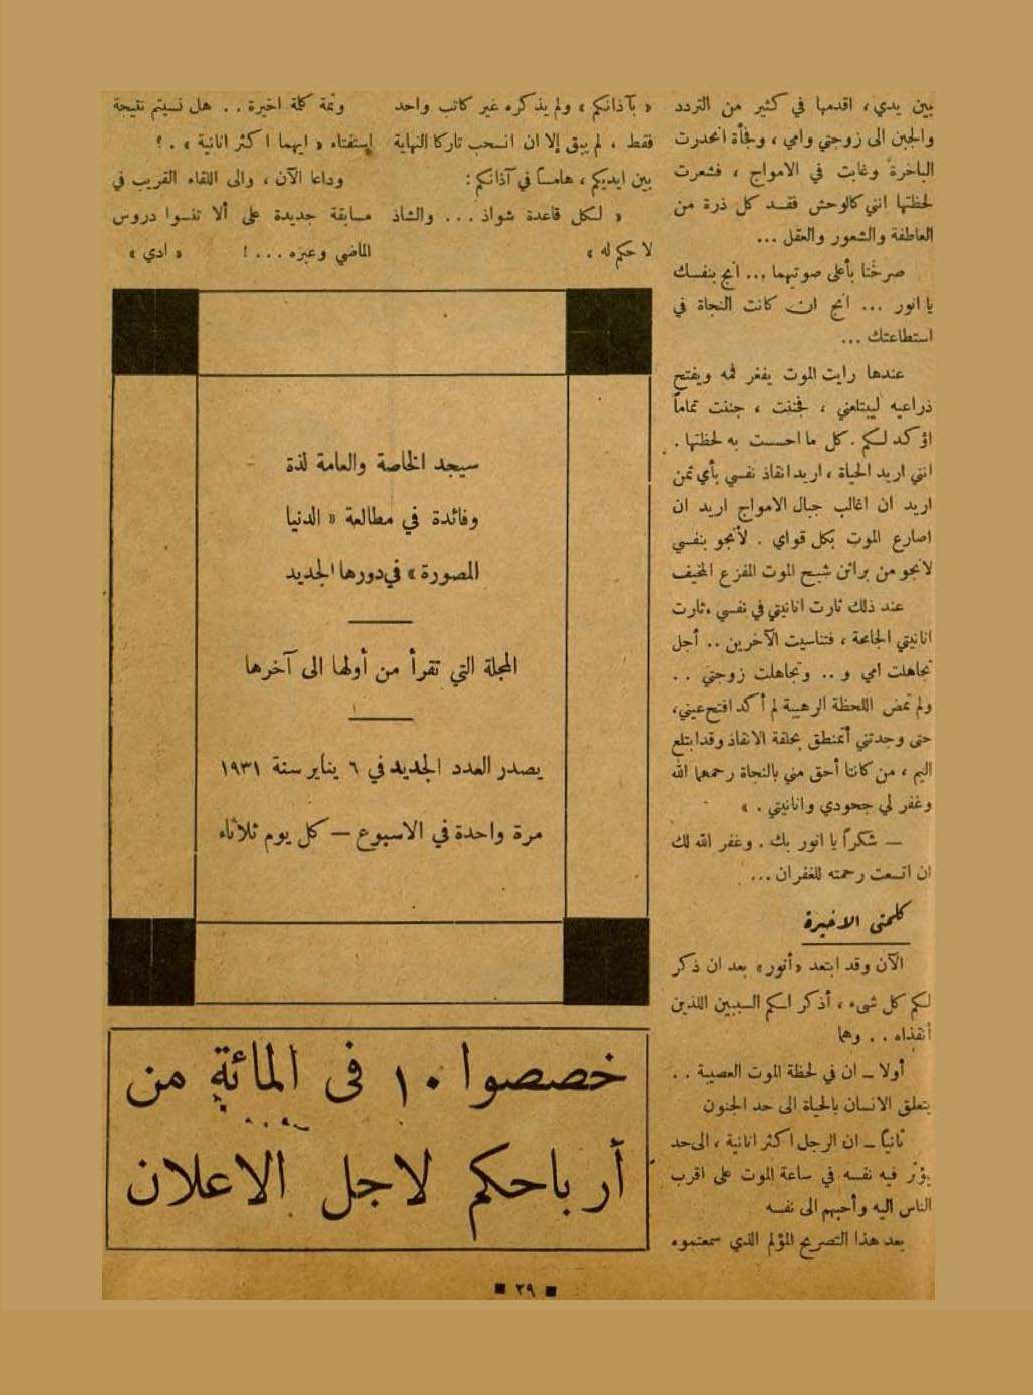 بين يدي ، اقدمها في كثير من التردد
والجبن الى زوجتي وامي ، وفجأة انحدرت
الباخرة وغابت في الامواج ، فشعرت
لحظتها انني كالوحش فقد كل ذرة من
العاطفة والشعور والعقل ...
صرختا بأعلى صوتيهما ... انج بنفسك
يا انور ... انج ان كانت النجاة في
استطاعتك ...
عندها رايت الموت يفغر فمه ويفتح
ذراعيه ليبتلعني ، فجننت ، جننت تماماً
اؤكد لكم . كل ما احسست به لحظتها .
انني اريد الحياة ، اريد انقاذ نفسي بأي ثمن
اريد ان اغالب جبال الامواج اريد ان
اصارع الموت بكل قواي . لأنجو بنفسي
لانجو من براثن شبح الموت المفزع المخيف
عند ذلك ثارت انانيتي في نفسي . ثارت
انانيتي الجامحة ، فتناسيت الآخرين .. أجل
تجاهلت امي و .. وتجاهلت زوجتي . .
ولم تمض اللحظة الرهيبة لم أكد افتح عيني،
حتى وجدتني أتمنطق بحلقة الانقاذ وقد ابتلع
اليم ، من كانتا أحق مني بالنجاة رحمهما الله
وغفر لي جحودي وانانيتي . »
— شكراً يا انور بك . وغفر الله لك
ان اتسعت رحمته للغفران ...
كلمتى الاخيرة
الآن وقد ابتعد «أنور» بعد ان ذكر
لكم كل شىء ، أذكر لكم السببين اللذين
أنقذاه . . وهما
أولا — ان في لحظة الموت العصيبة . .
يتعلق الانسان بالحياة الى حد الجنون
ثانياً — ان الرجل اكثر انانية ، الى حد
يؤثر فيه نفسه في ساعة الموت على اقرب
الناس اليه وأحبهم الى نفسه
بعد هذا التصريح المؤلم الذي سمعتموه
« بآذانكم » ولم يذكره غير كاتب واحد
فقط ، لم يبق إلا ان انسحب تاركا النهاية
بين ايديكم ، هامساً في آذانكم :
« لكل قاعدة شواذ ... والشاذ
لا حكم له »
وثمة كلمة اخيرة . . هل نسيتم نتيجة
استفتاء « ايهما اكثر انانية » . ؟
وداعا الآن ، والى اللقاء القريب في
مسابقة جديدة على ألا تنسوا دروس
الماضي وعبره ... ! « ادي »
سيجد الخاصة والعامة لذة
وفائدة في مطالعة « الدنيا
المصورة » في دورها الجديد
المجلة التي تقرأ من أولها الى آخرها
يصدر العدد الجديد في ٦ يناير سنة ١٩٣١
مرة واحدة في الاسبوع — كل يوم ثلاثاء
خصصوا ١٠ فى المائة من
أرباحكم لاجل الاعلان
■ ٢٩ ■